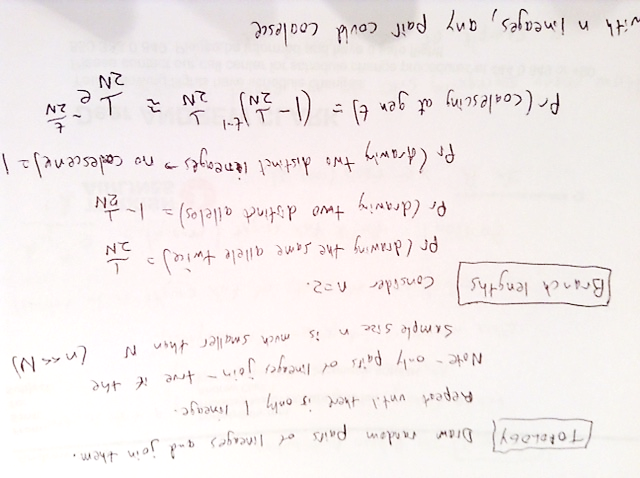 Topology Draw random pairs of lineages and join them.
Repeat until there is only 1 lineage.
Note - only pairs of lineages join - true if the
sample size n is much smaller than N (n << N)
Branch lengths Consider n=2.
Pr(drawing the same allele twice) = 1/2N
Pr(drawing two distinct alleles) = 1 - 1/2N
Pr(drawing two distinct lineages → no coalescence) = 1
Pr(coalescing at gen t) = (1 - 1/2N)^(t-1) 1/2N ≈ 1/2N e^(-t/2N)
with n lineages, any pair could coalesce